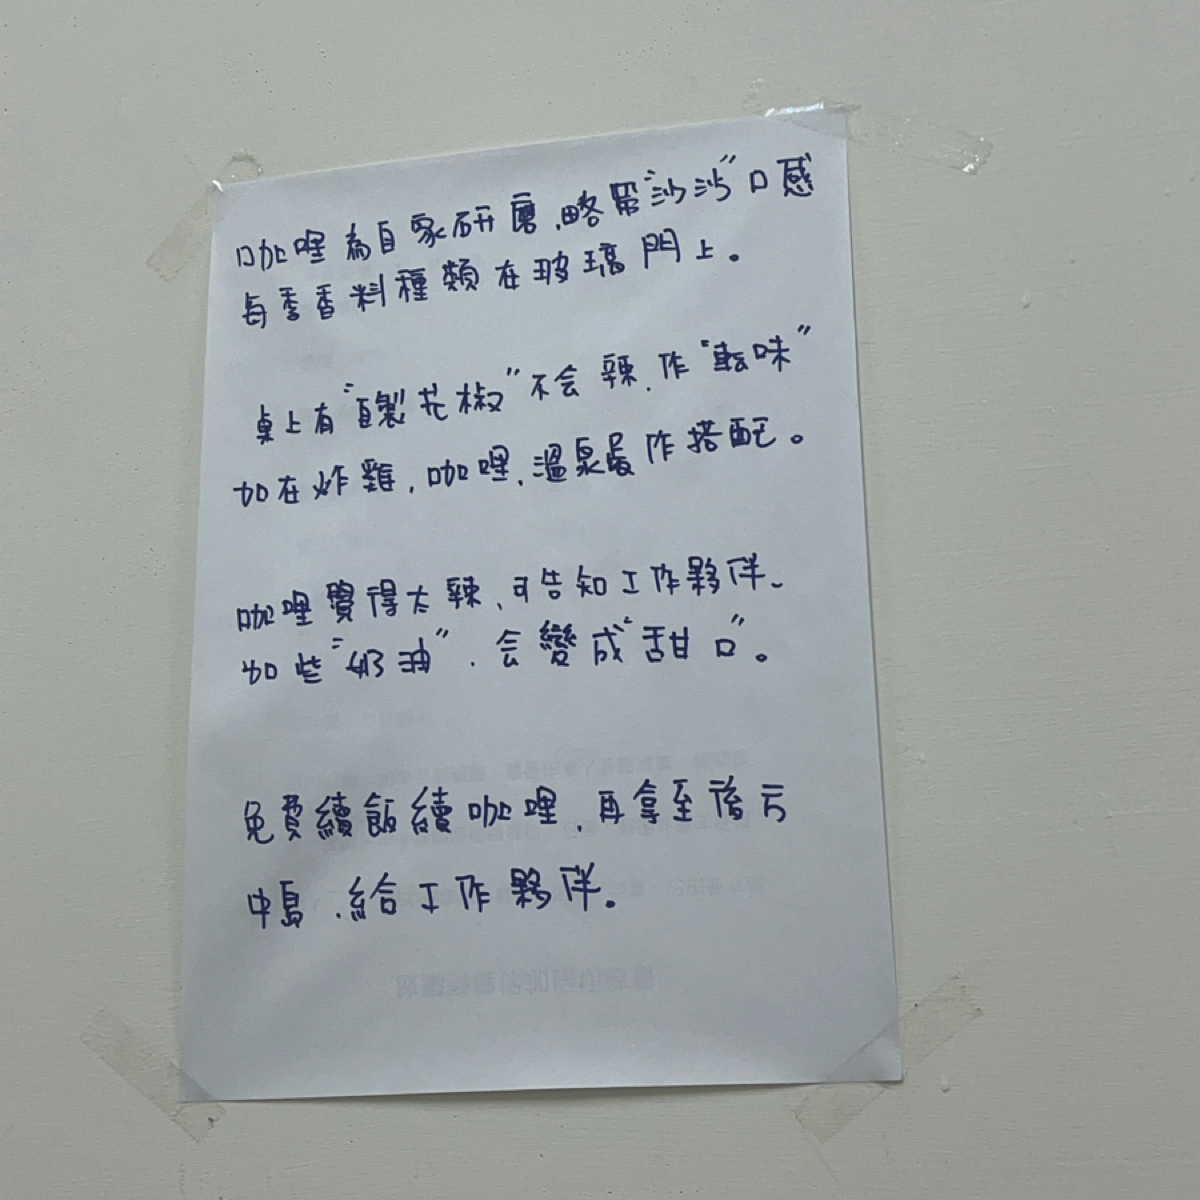 咖哩為自家研磨,略帶"沙沙"口感
每季香料種類在玻璃門上。
桌上有"自製花椒"不会辣,作"転味"
加在炸雞,咖哩,溫泉蛋作搭配。
咖哩覺得太辣,可告知工作夥伴、
加些"奶油",会變成"甜口"。
免費續飯續咖哩,再拿至後方
中島,給工作夥伴。